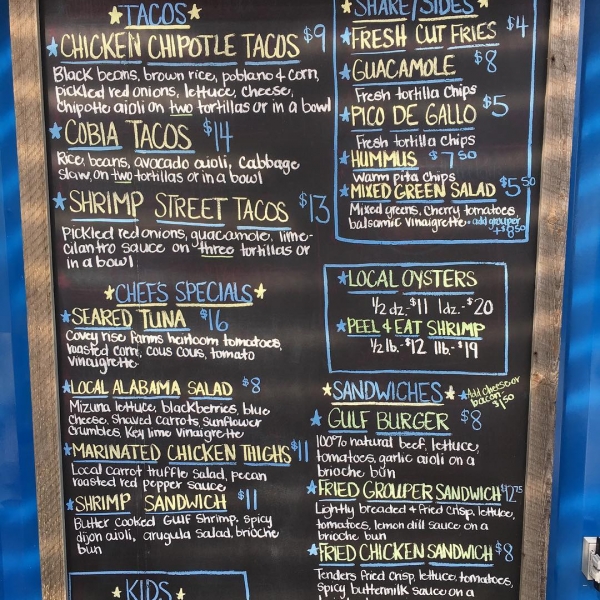 TACOS
CHICKEN CHIPOTLE TACOS $9
Black beans, brown rice, poblano & corn,
pickled red onions, lettuce, cheese,
chipotle aioli on two tortillas or in a bowl
COBIA TACOS $14
Rice, beans, avocado aioli, Cabbage
slaw, on two tortillas or in a bowl
SHRIMP STREET TACOS $13
Pickled red onions, guacamole, lime-
cilantro sauce on three tortillas or
in a bowl
CHEFS SPECIALS
SEARED TUNA $16
Covey rise Farms heirloom tomatoes,
roasted corn, cous cous, tomato
vinaigrette
LOCAL ALABAMA SALAD $8
Mizuna lettuce, blackberries, blue
cheese, shaved carrots, sunflower
crumbles, Key lime vinaigrette
MARINATED CHICKEN THIGHS $11
Local carrot truffle salad, pecan
roasted red pepper sauce
SHRIMP SANDWICH $11
Butter cooked Gulf Shrimp, spicy
dijon aioli, arugula salad, brioche
bun
KIDS
SHARE/SIDES
FRESH CUT FRIES $4
GUACAMOLE $8
Fresh tortilla chips
PICO DE GALLO $5
Fresh tortilla chips
HUMMUS $7.50
Warm pita chips
MIXED GREEN SALAD $5.50
Mixed greens, cherry tomatoes,
balsamic vinaigrette - add grouper
+$8.50
LOCAL OYSTERS
1/2 dz.-$11 1dz.-$20
PEEL & EAT SHRIMP
1/2 lb.-$12 1lb.-$19
SANDWICHES
Add cheese or
bacon
$1.50
GULF BURGER $8
100% natural beef, lettuce,
tomatoes, garlic aioli on a
brioche bun
FRIED GROUPER SANDWICH $12.75
Lightly breaded & fried crisp, lettuce,
tomatoes, lemon dill sauce on a
brioche bun
FRIED CHICKEN SANDWICH $8
Tenders fried crisp, lettuce, tomatoes,
spicy buttermilk sauce on a